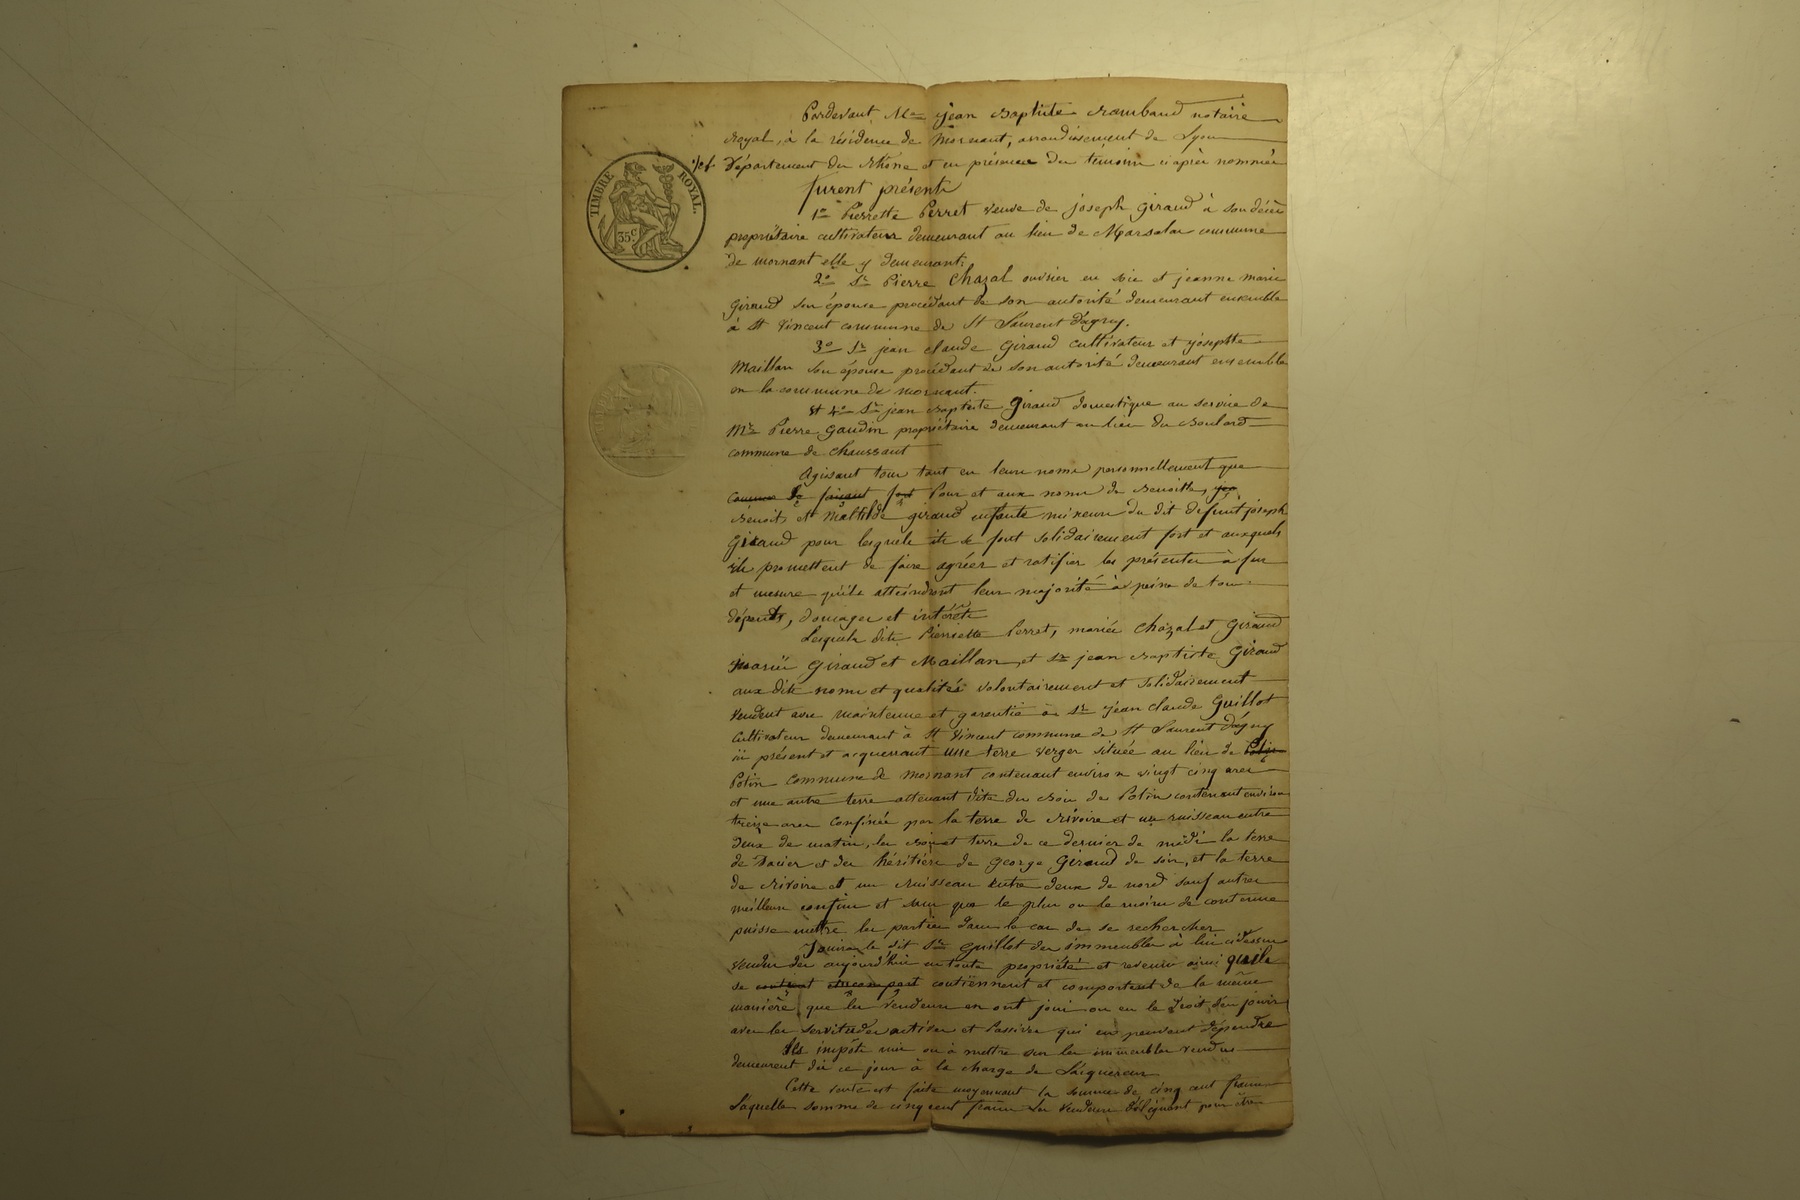 TIMBRE ROYAL.
35c
Pardevant Me jean Baptiste Rambaud notaire
Royal, à la résidence de Mornant, arrondissement de Lyon
Département du Rhône et en présence des témoins ciaprès nommés
furent présents
1o Pierrette Perret veuve de joseph Giraud à son décès
propriétaire cultivateur demeurant au lieu de commune
de mornant elle y demeurant.
2o Sr Pierre Chazal ouvrier en soie et jeanne marie
Giraud son épouse procédant de son autorité demeurant ensemble
à St Vincent commune de St Laurent d'agny.
3o Sr jean claude Giraud cultivateur et josephte
Maillan son épouse procédant de son autorité demeurant ensemble
en la commune de mornant.
Et 4o Sr jean Baptiste Giraud domestique au service de
Mr Pierre Gaudin propriétaire demeurant au lieu du Boulard
commune de Chaussant
Agissant tous tant en leurs noms personnellement que
comme se faisant fort Pour et aux noms de Benoitte,
Benoit et Matilde giraud enfants mineurs du dit défunt joseph
Giraud pour lesquels ils se font solidairement fort et auxquels
ils promettent de faire agréer et ratifier les présentes à fur
et mesure qu'ils atteindront leur majorité à peine de tous
dépents, domages et intérêts
Lesquels dits Pierrette Perret, mariés Chazal et Giraud
mariés Giraud et Maillan, et Sr jean Baptiste Giraud
aux dits noms et qualités volontairement et solidairement
vendent avec maintenue et garentie à Sr jean claude Guillot
Cultivateur demeurant à St Vincent commune de St Laurent d'agny
ici présent et acquerrant une terre verger située au lieu de
Potin commune de Mornant contenant environ vingt cinq ares
et une autre terre attenant dite du Bois de Potin contenant environ
treize ares confinés par la terre de Rivoire et un ruisseau entre
deux de matin, les bois et terre de ce dernier de midi la terre
de et des héritiers de George Giraud de soir, et la terre
de Rivoire et un Ruisseau entre deux de nord sauf autres
meilleurs confins et sans que le plus ou le moins de contenue
puisse mettre les parties dans le cas de se rechercher
Jouira le dit Sr Guillot des immeubles à lui cidessus
vendus dès aujourd'hui en toute propriété et revenus ainsi qu'ils
se contiennent et comportent de la même
manière que les vendeurs en ont joui ou eu le Droit d'en jouir
avec les servitudes actives et Passives qui en peuvent dépendre
Les impôts mis ou à mettre sur les immeubles vendus
demeurent dès ce jour à la charge de L'acquereur
Cette vente est faite moyennant la somme de cinq cent francs
Laquelle somme de cinq cent francs Les Vendeurs délèguent pour être